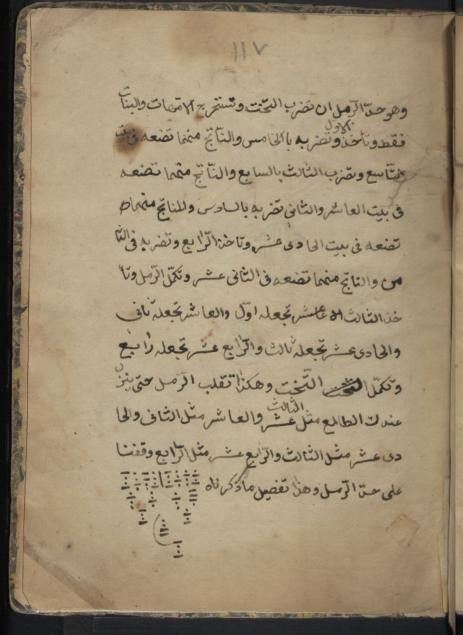 ١١٧
وهو حدّ الرمل ان تضرب التخت وتستخرج الامهات والبنات
فقط وتأخذ الاول وتضربه بالخامس والناتج منهما تضعه فى بيت
التاسع وتضرب الثالث بالسابع والناتج منهما تضعه
فى بيت العاشر والثانى تضربه بالسادس والناتج منهما
تضعه فى بيت الحادى عشر وتاخذ الرابع وتضربه فى الثا
من والناتج منهما تضعه فى الثانى عشر وتكمّل الرمل وتأ
خذ الثالث عشر تجعله اول والعاشر تجعله ثانى
والحادى عشر تجعله ثالث والرابع عشر تجعله رابع
وتكمّل التخت وهكذا تقلب الرمل حتى ينزل
عندك الطالع مثل الثالث عشر والعاشر مثل الثانى والحا
دى عشر مثل الثالث والرابع عشر مثل الرابع وقفنا
على حدّ الرمل وهذا تفصيل ما ذكرناه